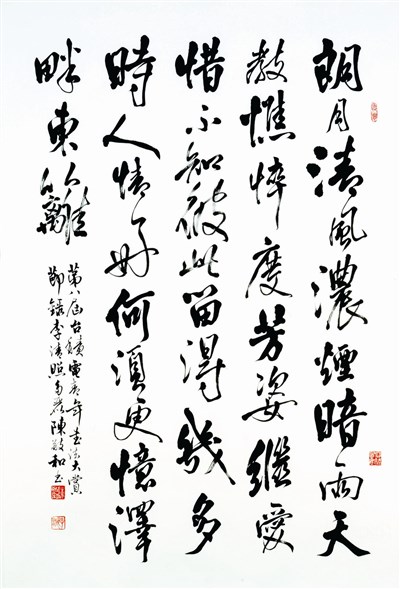 朗月清風濃煙暗雨天
教憔悴度芳姿縱愛
惜不知從此留得幾多
時人情好何須更憶澤
畔東籬
第八屆台積電青年書法大賞
節錄李清照多麗陳和書